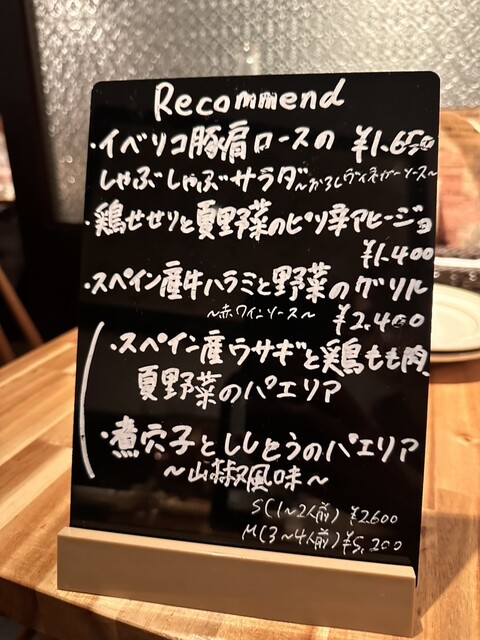 Recommend
・イベリコ豚肩ロースの ¥1,650
しゃぶしゃぶサラダ〜おろしヴィネガーソース〜
・鶏せせりと夏野菜のピリ辛アヒージョ
¥1,400
・スペイン産牛ハラミと野菜のグリル
〜赤ワインソース〜 ¥2,400
・スペイン産ウサギと鶏もも肉、
夏野菜のパエリア
・煮穴子とししとうのパエリア
〜山椒風味〜
S(1〜2人前) ¥2600
M(3〜4人前) ¥5,200